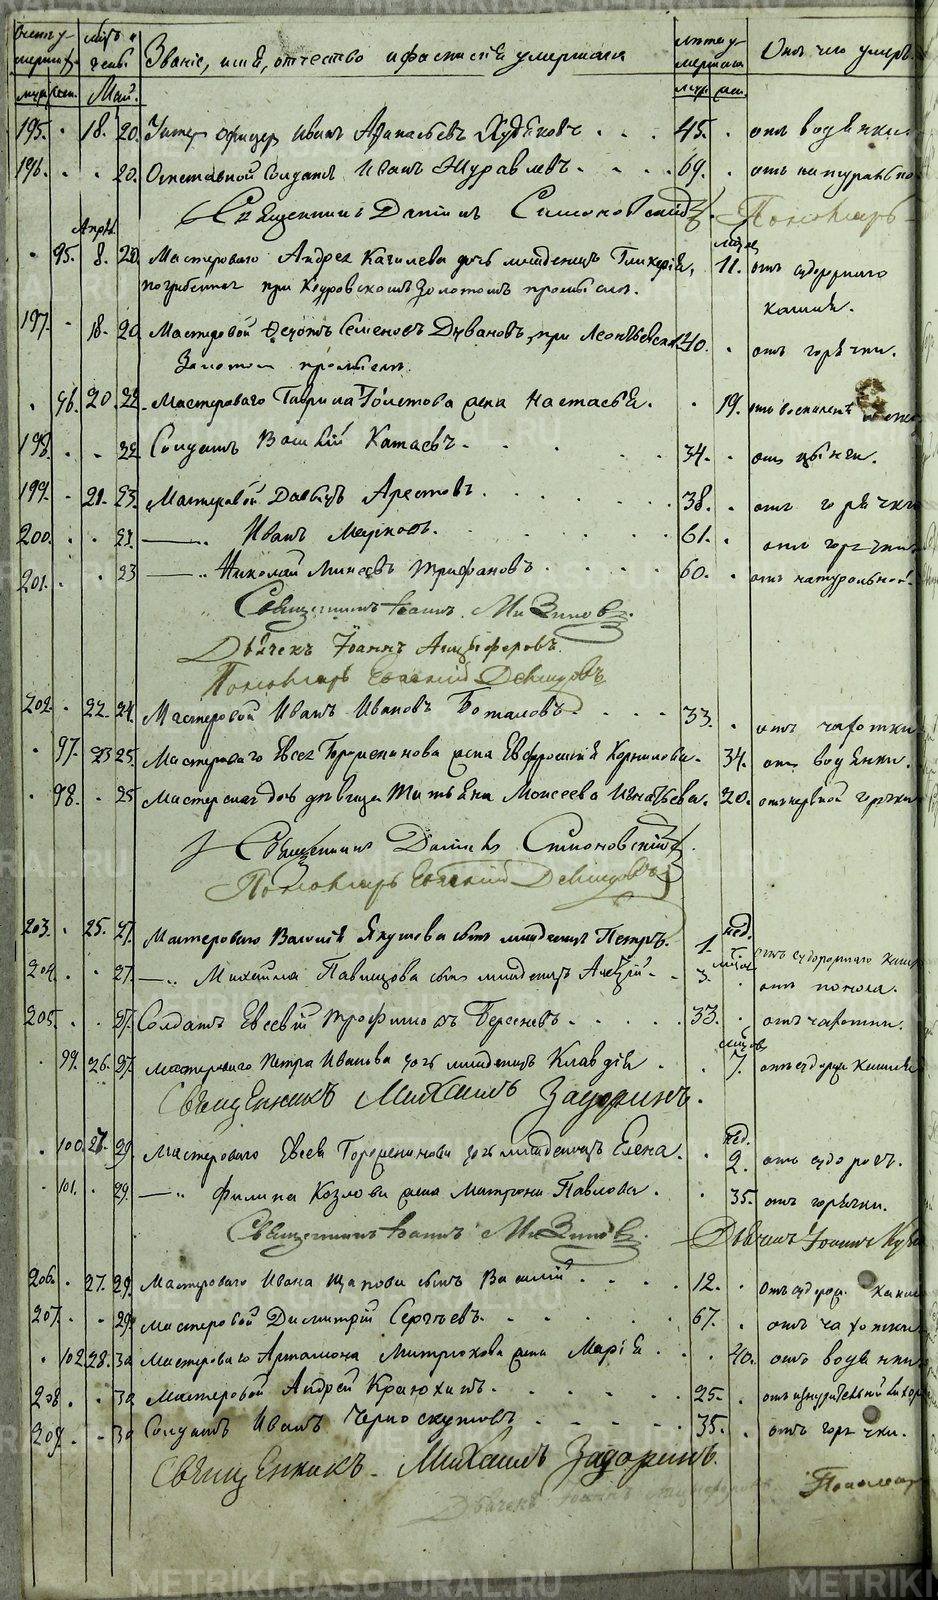 Счетъ умершихъ. мѣсяцъ и день Званіе, имя, отчество и фамилія умершаго лѣта умершаго Отъ чего умеръ
муж. жен. Май. муж. жен.
195. 18. 20. Унтер офицер Иванъ Афанасьевъ Худяковъ 45. отъ водянки
196. 20. Отставной Солдатъ Иванъ Журавлевъ 69. отъ натуральной
Священникъ Даніилъ Симоновскій Пономарь
Апрѣл.
95. 8. 20. Мастероваго Андрея Качилева дочь младенецъ Гликерія, мѣсяц. 11. отъ судорожнаго
погребенная при Кедровскомъ Золотомъ промыслѣ. кашля.
197. 18. 20 Мастеровой Семенов при Золотом промыслѣ 40. отъ горячки.
96. 20. 22. Мастероваго Гаврила жена Настасья. 19. отъ воспаленія
198. 22. Солдатъ Василій Катаевъ. 34. отъ цынги.
199. 21. 23. Мастеровой Давыдъ Арестовъ. 38. отъ горячки
200. 23. Иванъ Марковъ. 61. отъ горячки
201. 23 Николай Минеевъ Трифановъ 60. отъ натуральной
Священникъ Іоаннъ Мизинов.
Дьячекъ Іоаннъ Анцыферовъ.
Пономарь Евгеній Демидовъ
202. 22. 24. Мастеровой Иванъ Ивановъ Боталовъ. 33. отъ чахотки
97. 23 25. Мастероваго Евсея жена Евфросинія Корнилова. 34. отъ водянки.
98. 25 Мастерская дочь дѣвица Татьяна Моисеева Игнатьева. 20. отъ нервной горячки
Священникъ Даніилъ Симоновскій
Пономарь Евгеній Демидовъ
203. 25. 27. Мастероваго Василія Якушева сынъ младенецъ Петръ. 1 нед. отъ судорожнаго кашля
204. 27. Михайла сынъ младенецъ Алексѣй. 3. мѣсяц. отъ поноса.
205. 27. Солдатъ Евсевій Трофимовъ Берсеневъ. 33. отъ чахотки.
99. 26. 27. Мастероваго Петра Иванова дочь младенецъ Клавдія мѣсяцов 7. отъ судорж. кашля
Священникъ Михаилъ Задоринъ.
100. 27. 29. Мастероваго Евсея дочь младенецъ Елена. нед. 2. отъ судорогъ.
101. 29. Филипа Козлова жена Матрона Павлова. 35. отъ горячки.
Священникъ Іоаннъ Мизинов. Дьячекъ Іоаннъ
206. 27. 29. Мастероваго Ивана Щапова сынъ Василій 12. отъ судорож. кашля
207. 29. Мастеровой Димитрій Сергѣевъ. 67. отъ чахотки
102. 28. 30 Мастероваго Артамона Митрюкова жена Марія 40. отъ водянки
208. 30 Мастеровой Андрей Краюхинъ. 25. отъ изнурительной лихор
209. 30 Солдатъ Иванъ Черноскутовъ 35. отъ горячки.
Священникъ Михаилъ Задоринъ.
Дьячекъ Іоаннъ Анцыферовъ Пономар
METRIKI.GASO-URAL.RU